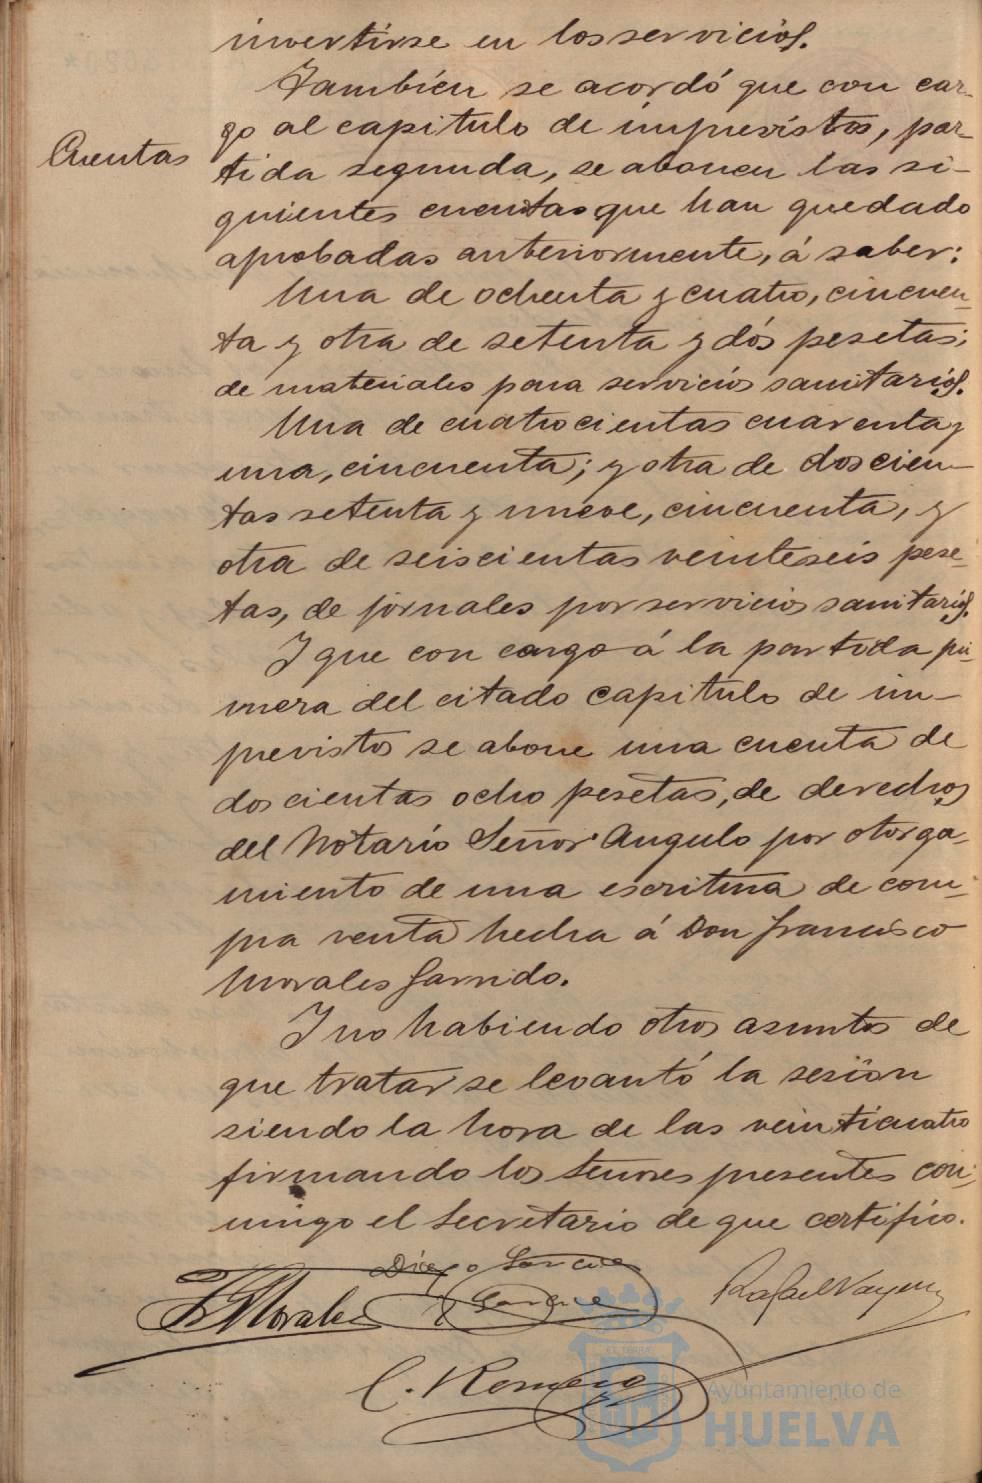 invertirse en los servicios.
También se acordó que con car-
go al capitulo de imprevistos, par-
Cuentas
tida segunda, se abonen las si-
guientes cuentas que han quedado
aprobadas anteriormente, á saber:
Una de ochenta y cuatro, cincuen-
ta y otra de setenta y dós pesetas;
de materiales para servicios sanitarios.
Una de cuatrocientas cuarenta y
una, cincuenta; y otra de doscien-
tas setenta y nueve, cincuenta, y
otra de seiscientas veinteseis pese-
tas, de jornales por servicios sanitarios.
Y que con cargo á la partida pri-
mera del citado capitulo de im-
previstos se abone una cuenta de
doscientas ocho pesetas, de derechos
del Notario Señor Angulo por otorga-
miento de una escritura de com-
pra venta hecha á Don Francisco
Morales Garrido.
Y no habiendo otros asuntos de
que tratar se levantó la sesión
siendo la hora de las veinticuatro
firmando los Señores presentes con-
migo el Secretario de que certifico.
Diego
Morales
Rafael
C. Romero
Ayuntamiento de
HUELVA